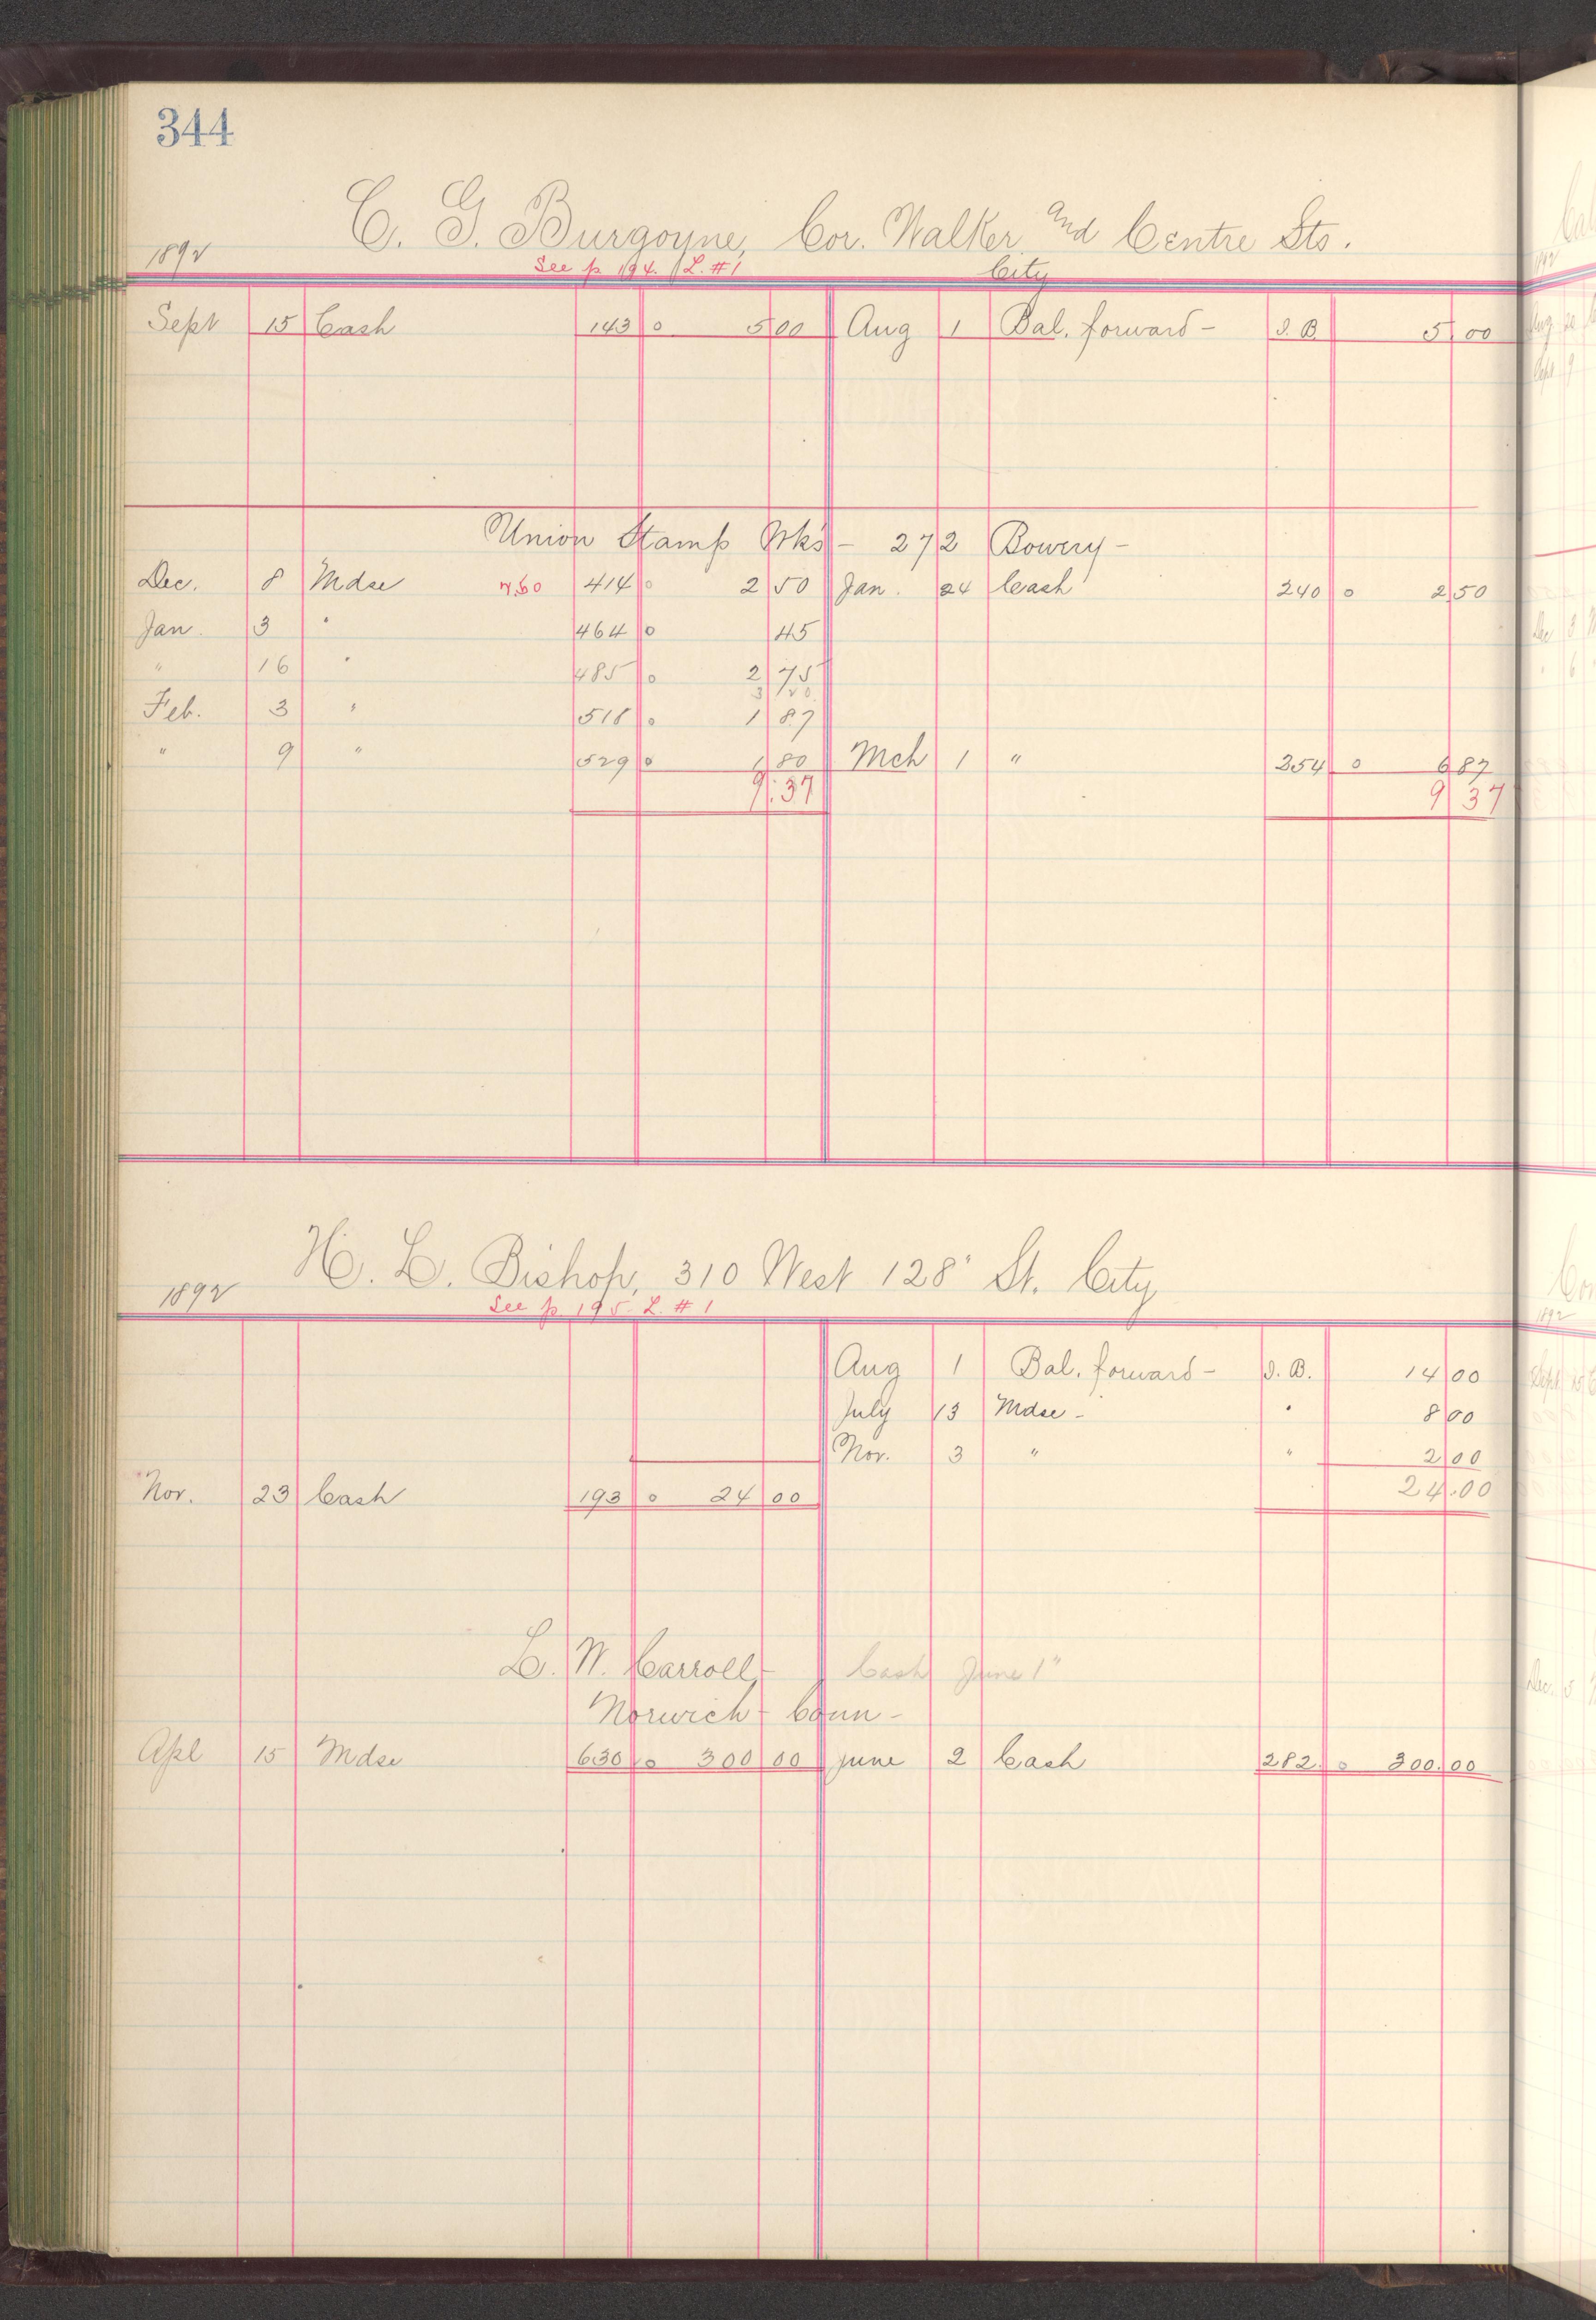 344
C. G. Burgoyne, Cor. Walker and Centre Sts.
1892 See p 194. L. #1 City
Sept 15 Cash 143 0 5 00 Aug 1 Bal. forward - S. B. 5 00
Union Stamp Wks - 272 Bowery -
Dec. 8 Mdse 7.50 414 0 2 50 Jan. 24 Cash 240 0 2 50
Jan. 3 " 464 0 45
" 16 " 485 0 2 75
3/20
Feb. 3 " 518 0 1 87
" 9 " 529 0 1 80 Mch 1 " 254 0 6 87
9.37 9 37
H. L. Bishop, 310 West 128" St. City
1892 See p 195 L. #1
Aug 1 Bal. forward - S. B. 14 00
July 13 Mdse - " 8 00
Nov. 3 " " 2 00
Nov. 23 Cash 193 0 24 00 24.00
L. W. Carroll, Cash June 1"
Norwich - Conn -
Apl 15 Mdse 630 0 300 00 June 2 Cash 282 0 300.00